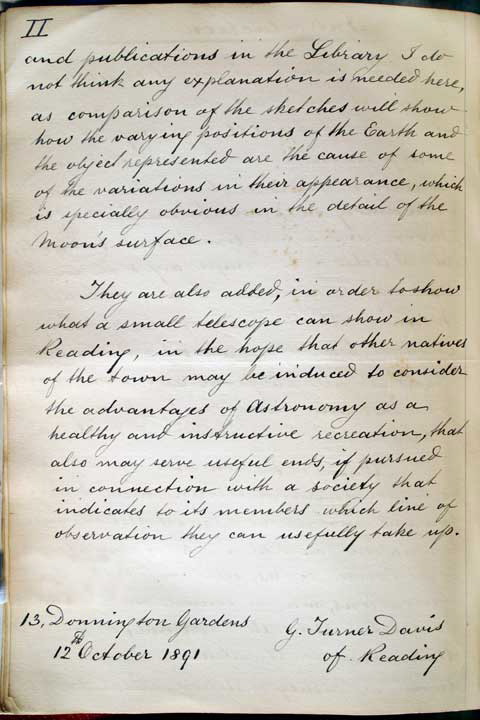 II
and publications in the Library I do
not think any explanation is needed here,
as comparison of the sketches will show
how the varying positions of the Earth and
the object represented are the cause of some
of the variations in their appearance, which
is specially obvious in the detail of the
Moon's surface.
They are also added, in order to show
what a small telescope can show in
Reading, in the hope that other natives
of the town may be induced to consider
the advantages of Astronomy as a
healthy and instructive recreation, that
also may serve useful ends, if pursued
in connection with a society that
indicates to its members which line of
observation they can usefully take up.
13, Donnington Gardens
12th October 1891
G. Turner Davis
of Reading